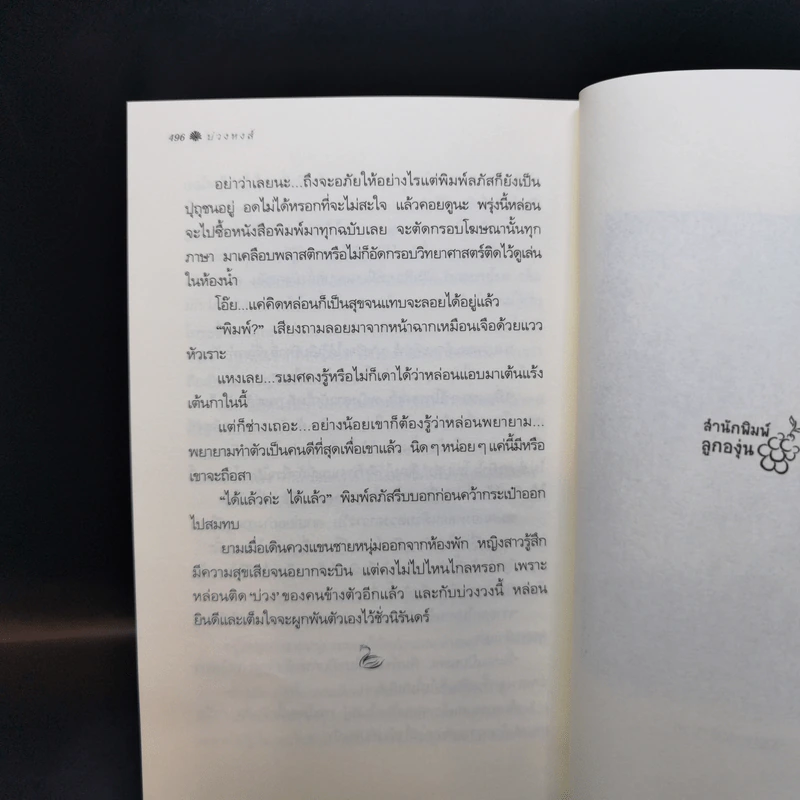 496 บ่วงหงส์
อย่าว่าเลยนะ...ถึงจะอภัยให้อย่างไรแต่พิมพ์ลภัสก็ยังเป็น
ปุถุชนอยู่ อดไม่ได้หรอกที่จะไม่สะใจ แล้วคอยดูนะ พรุ่งนี้หล่อน
จะไปซื้อหนังสือพิมพ์มาทุกฉบับเลย จะตัดกรอบโฆษณานั้นทุก
ภาษา มาเคลือบพลาสติกหรือไม่ก็อัดกรอบวิทยาศาสตร์ติดไว้ดูเล่น
ในห้องน้ำ
โอ๊ย...แค่คิดหล่อนก็เป็นสุขจนแทบจะลอยได้อยู่แล้ว
“พิมพ์?” เสียงถามลอยมาจากหน้าฉากเหมือนเจือด้วยแวว
หัวเราะ
แหงเลย...รเมศคงรู้หรือไม่ก็เดาได้ว่าหล่อนแอบมาเต้นแร้ง
เต้นกาในนี้
แต่ก็ช่างเถอะ...อย่างน้อยเขาก็ต้องรู้ว่าหล่อนพยายาม...
พยายามทำตัวเป็นคนดีที่สุดเพื่อเขาแล้ว นิดๆ หน่อยๆ แค่นี้มีหรือ
เขาจะถือสา
“ได้แล้วค่ะ ได้แล้ว” พิมพ์ลภัสรีบบอกก่อนคว้ากระเป๋าออก
ไปสมทบ
ยามเมื่อเดินควงแขนชายหนุ่มออกจากห้องพัก หญิงสาวรู้สึก
มีความสุขเสียจนอยากจะบิน แต่คงไม่ไปไหนไกลหรอก เพราะ
หล่อนติด ‘บ่วง’ ของคนข้างตัวอีกแล้ว และกับบ่วงวงนี้ หล่อน
ยินดีและเต็มใจจะผูกพันตัวเองไว้ชั่วนิรันดร์
สำนักพิมพ์
ลูกองุ่น